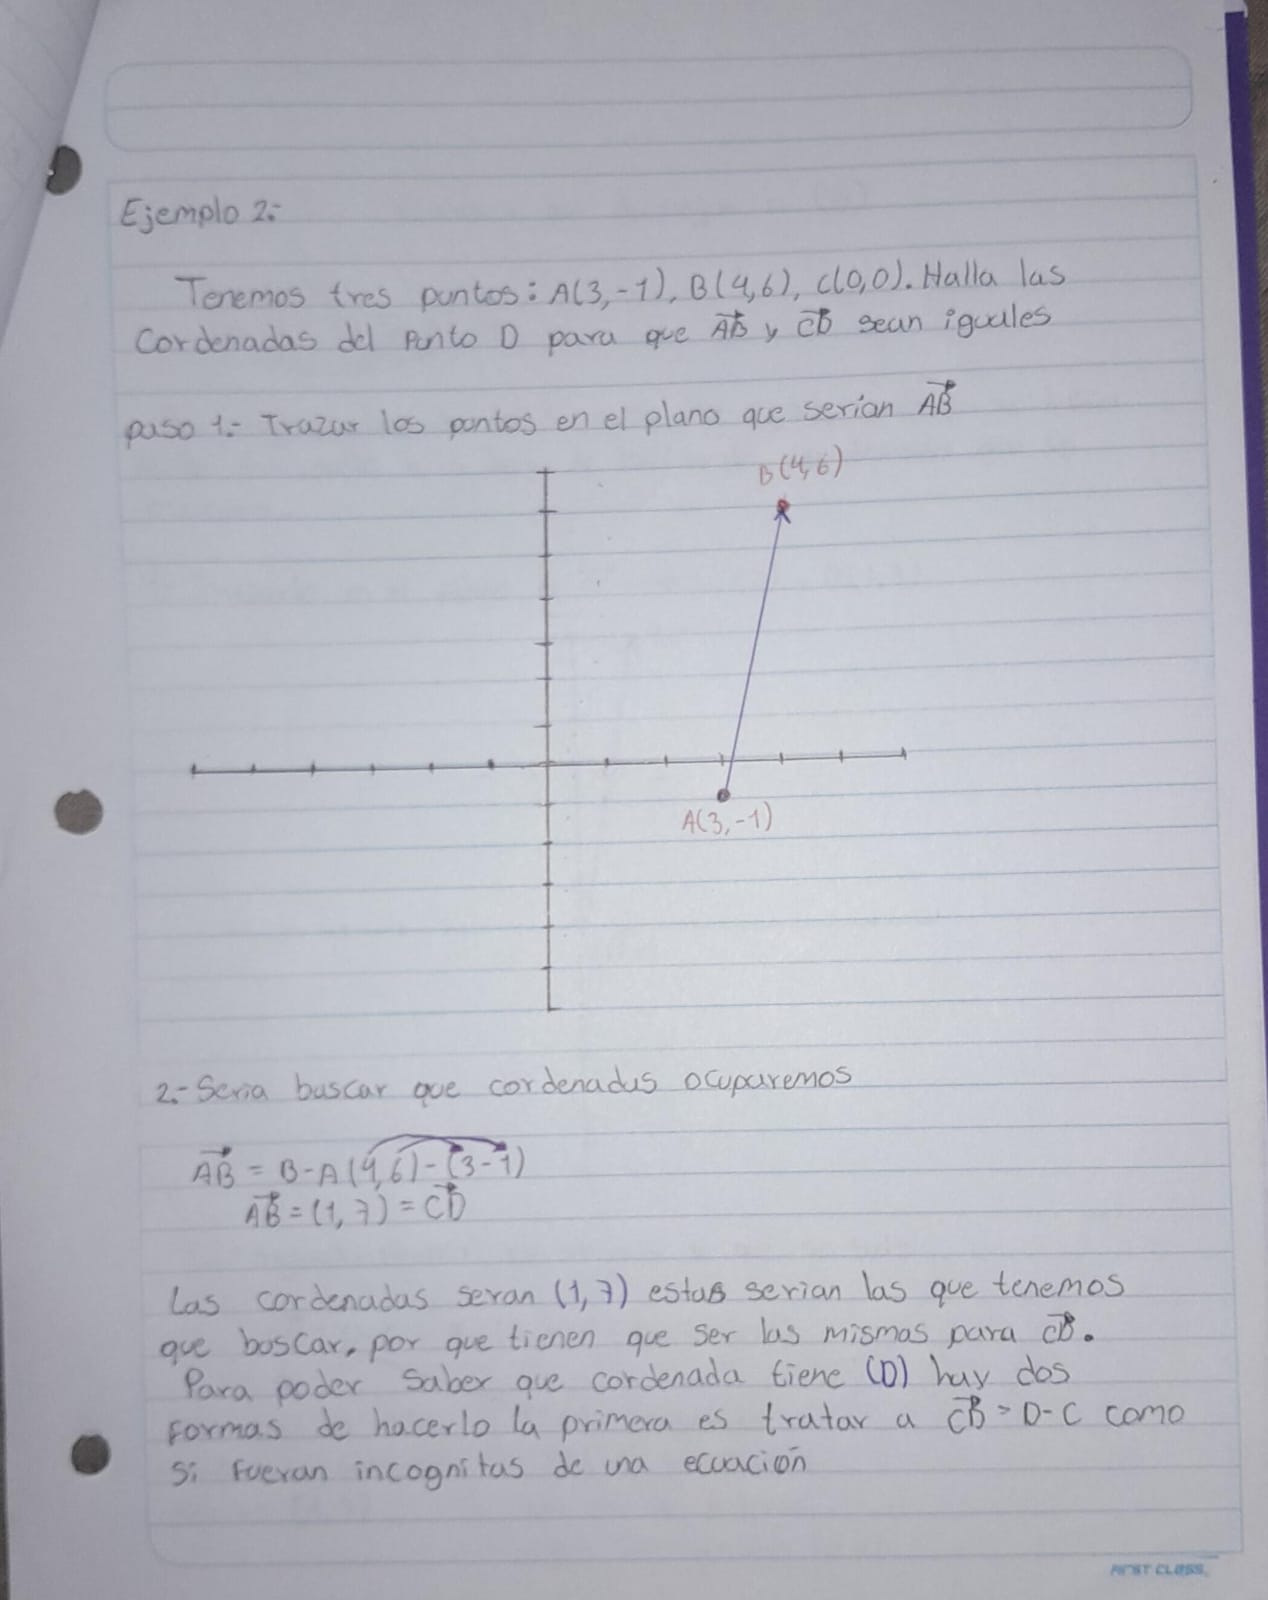 Ejemplo 2.-
Tenemos tres puntos: A(3,-1), B(4,6), C(0,0). Halla las
Cordenadas del punto D para que AB y CD sean iguales
paso 1.- Trazar los puntos en el plano que serian AB
B(4,6)
A(3,-1)
2.- Seria buscar que cordenadas ocuparemos
AB = B-A(4,6)-(3-1)
AB = (1,7) = CD
Las cordenadas seran (1,7) estas serian las que tenemos
que buscar, por que tienen que ser las mismas para CD.
Para poder Saber que cordenada tiene (D) hay dos
Formas de hacerlo la primera es tratar a CD = D-C como
Si Fueran incognitas de una ecuación
FIRST CLASS